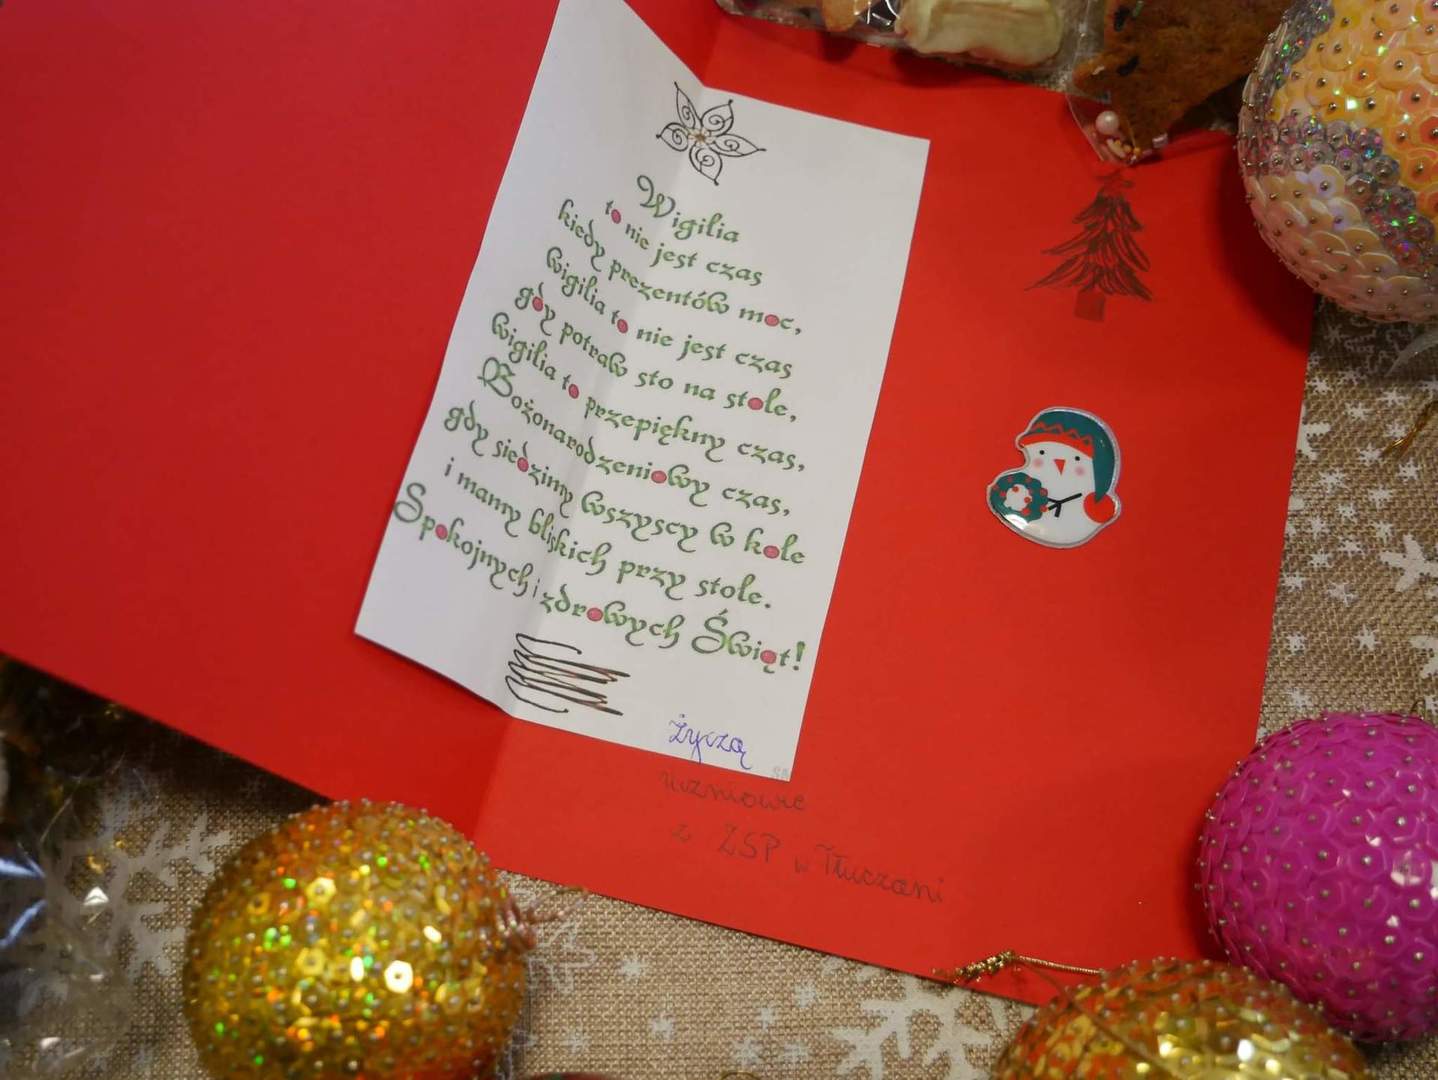 Wigilia
to nie jest czas
kiedy prezentów moc,
wigilia to nie jest czas
gdy potraw sto na stole,
wigilia to przepiękny czas,
Bożonarodzeniowy czas,
gdy siedzimy wszyscy w kole
i mamy bliskich przy stole.
Spokojnych i zdrowych Świąt!
Życzą
uczniowie
z ZSP w Tłuczani